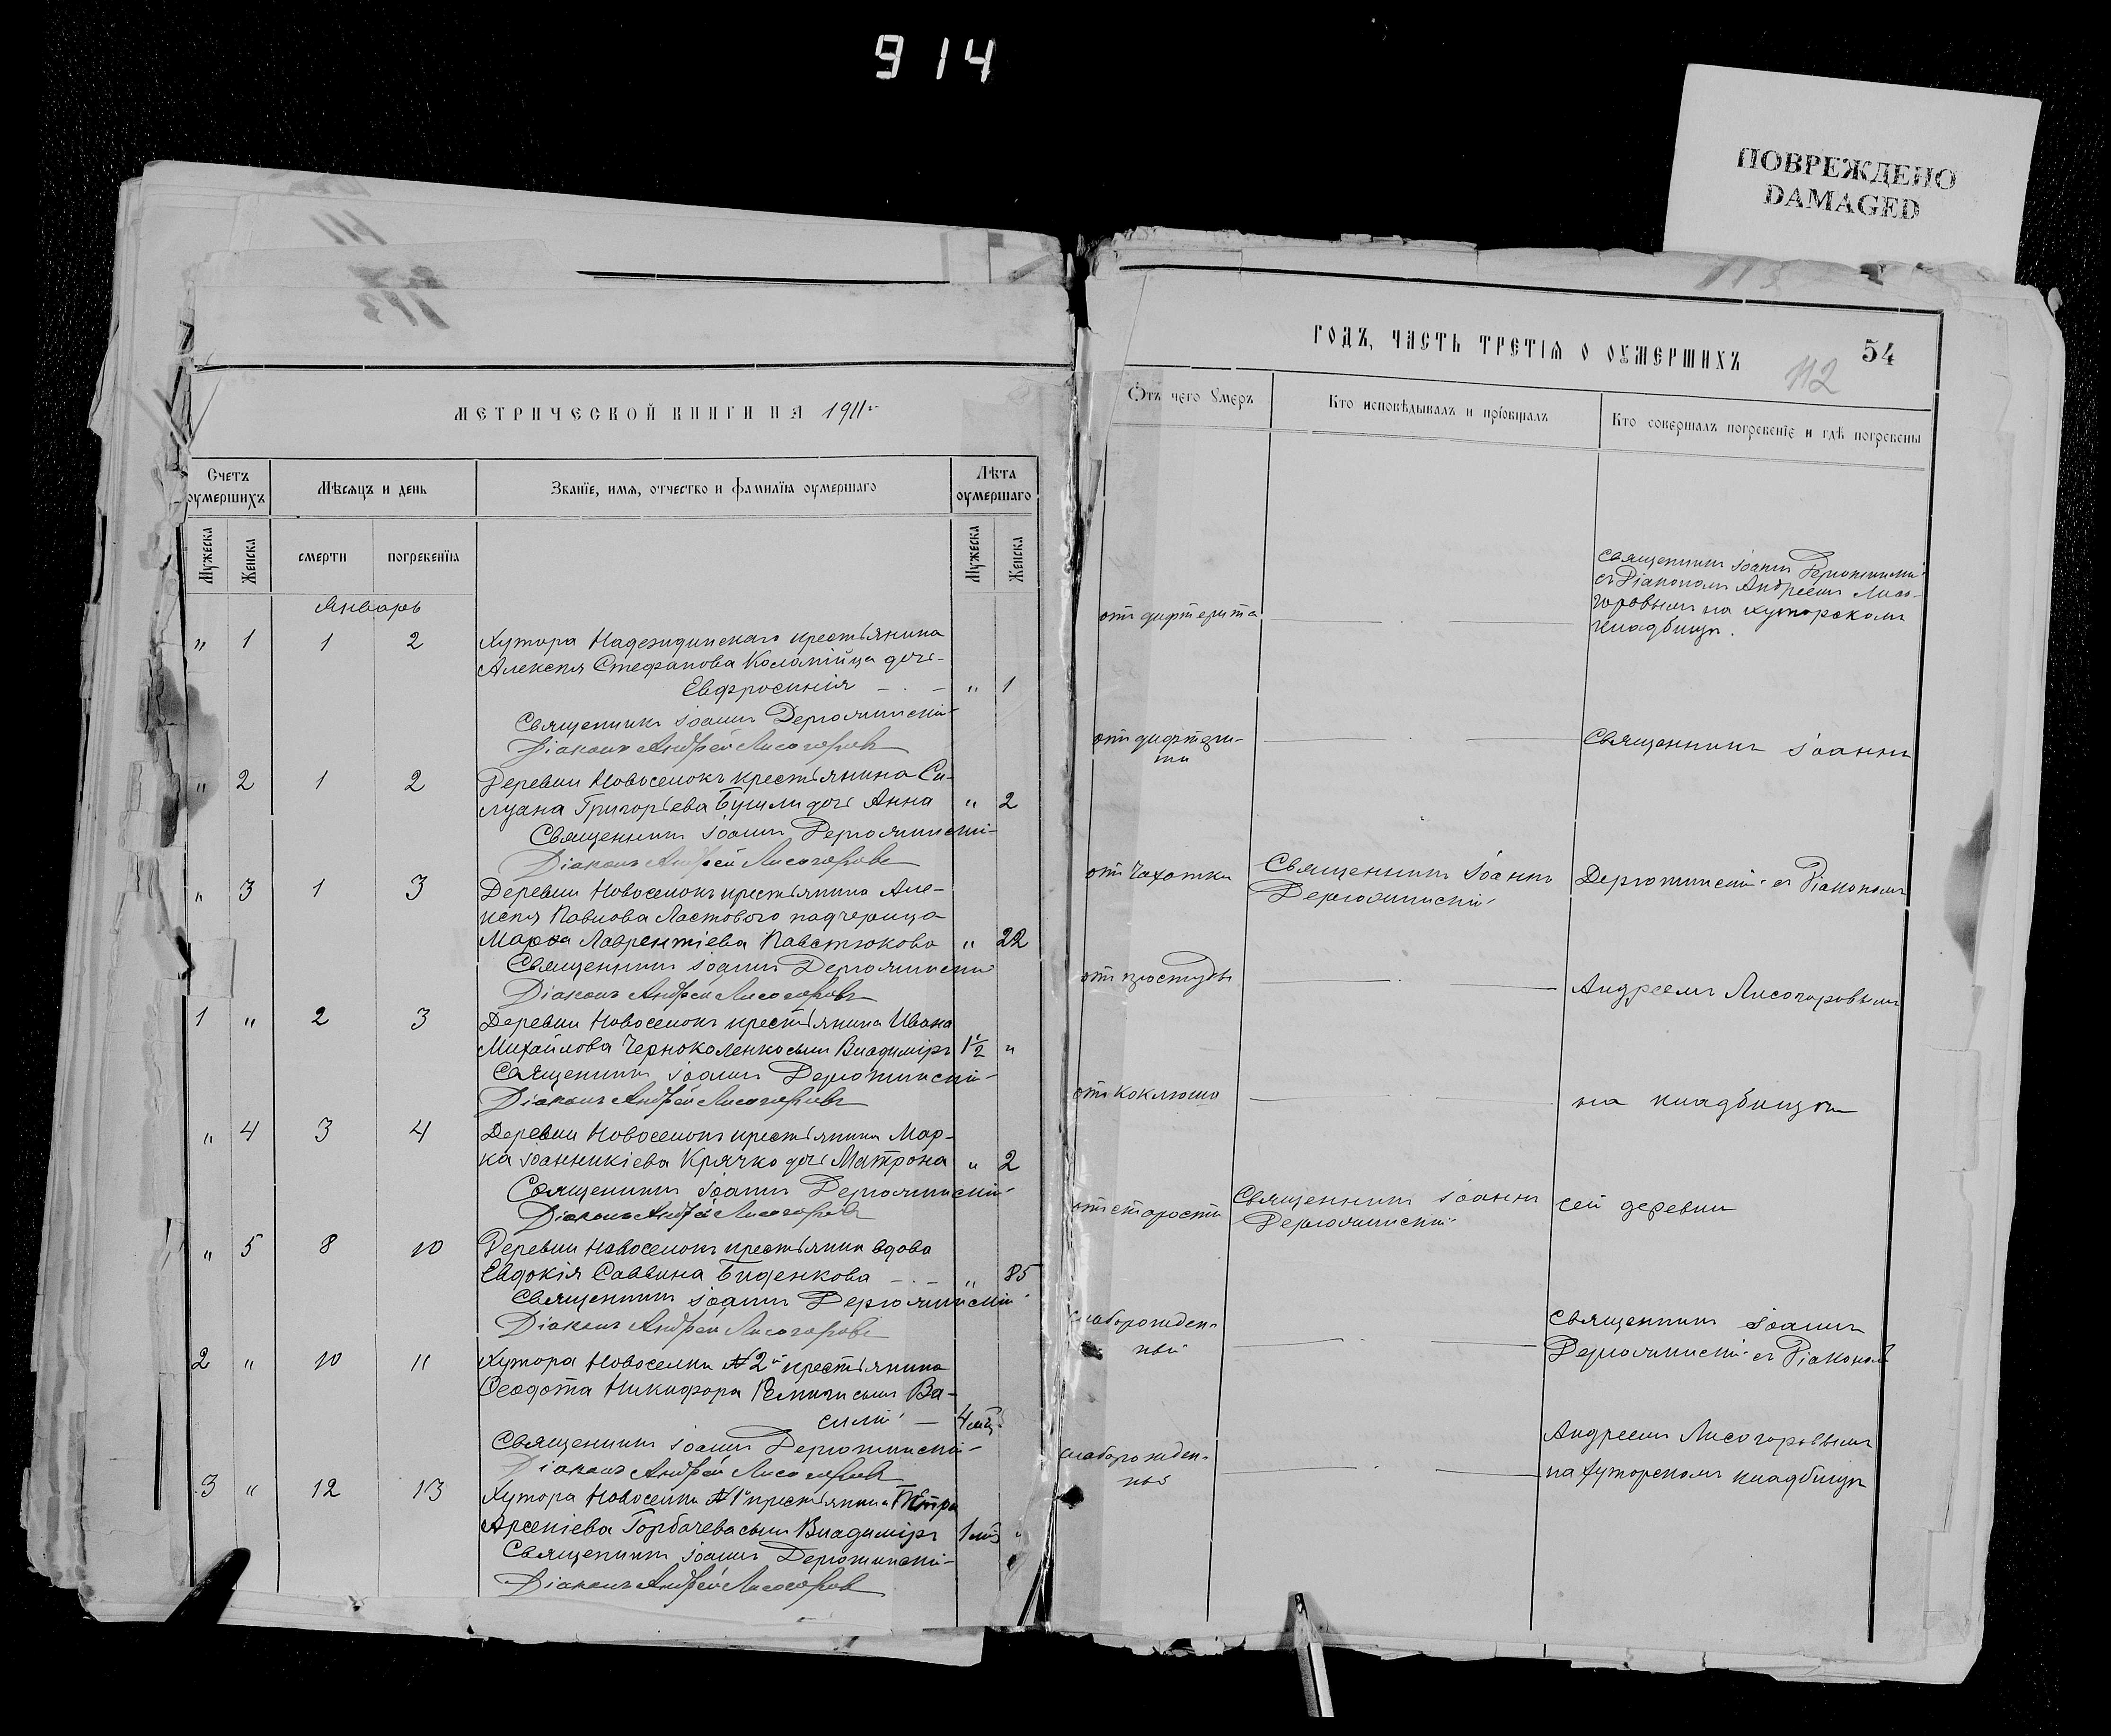 914
ПОВРЕЖДЕНО
DAMAGED
МЕТРИЧЕСКОЙ КНИГИ НА 1911 г
Счетъ оумершихъ
Мѣсяцъ и день
Званїе, имя, отчество и фамилїа оумершаго
Лѣта оумершаго
Мужеска
Женска
смерти
погребенїа
Мужеска
Женска
Январь
" 1 1 2 Хутора Надеждинскаго крестьянина
Алексѣя Стефанова Коломійца дочь
Евфросинія — . — " 1
Священникъ Іоаннъ Держинскій
Діаконъ Андрей Лисогоровъ
" 2 1 2 Деревни Новоселокъ крестьянина Си-
луана Григорьева Бугили дочь Анна " 2
Священникъ Іоаннъ
Діаконъ Андрей Лисогоровъ
" 3 1 3 Деревни Новоселокъ крестьянина Але-
ксѣя Павлова Ластового падчерица
Марѳа Лаврентіева Павстюкова " 22
Священникъ Іоаннъ
Діаконъ Андрей Лисогоровъ
1 " 2 3 Деревни Новоселокъ крестьянина Ивана
Михайлова Черноколенко сынъ Владиміръ 1½ "
Священникъ Іоаннъ
Діаконъ Андрей Лисогоровъ
" 4 3 4 Деревни Новоселокъ крестьянина Мар-
ка Іоанникіева Крячко дочь Матрона " 2
Священникъ Іоаннъ
Діаконъ Андрей Лисогоровъ
" 5 8 10 Деревни Новоселокъ крестьянин вдова
Евдокія Саввина Биденкова — . — " 85
Священникъ Іоаннъ
Діаконъ Андрей Лисогоровъ
2 " 10 11 Хутора Новоселки № 2й крестьянина
Ѳеодота Никифора сынъ Ва-
силій — 4 мѣс.
Священникъ Іоаннъ
Діаконъ Андрей Лисогоровъ
3 " 12 13 Хутора Новоселки № 1й крестьянина Петра
Арсеніева Горбачева сынъ Владиміръ 1 мѣс "
Священникъ Іоаннъ
Діаконъ Андрей Лисогоровъ
ГОДЪ, ЧАСТЬ ТРЕТІЯ О ОУМЕРШИХЪ
54
112
Отъ чего оумеръ
Кто исповѣдывалъ и прїобщалъ
Кто совершалъ погребенїе и гдѣ погребены
Священникъ Іоаннъ
съ Діакономъ Андреемъ Лисо-
горовымъ на хуторскомъ
кладбищѣ.
отъ дифтерита
отъ дифтери-
та
Священникъ Іоаннъ
отъ чахотки
Священникъ Іоаннъ
съ Діакономъ
отъ простуды
Андреемъ Лисогоровымъ
отъ коклюша
на кладбищѣ
отъ старости
Священникъ Іоаннъ
сей деревни
слаборожден-
ный
Священникъ Іоаннъ
съ Діакономъ
Андреемъ Лисогоровымъ
слаборожден-
ный
на хуторскомъ кладбищѣ